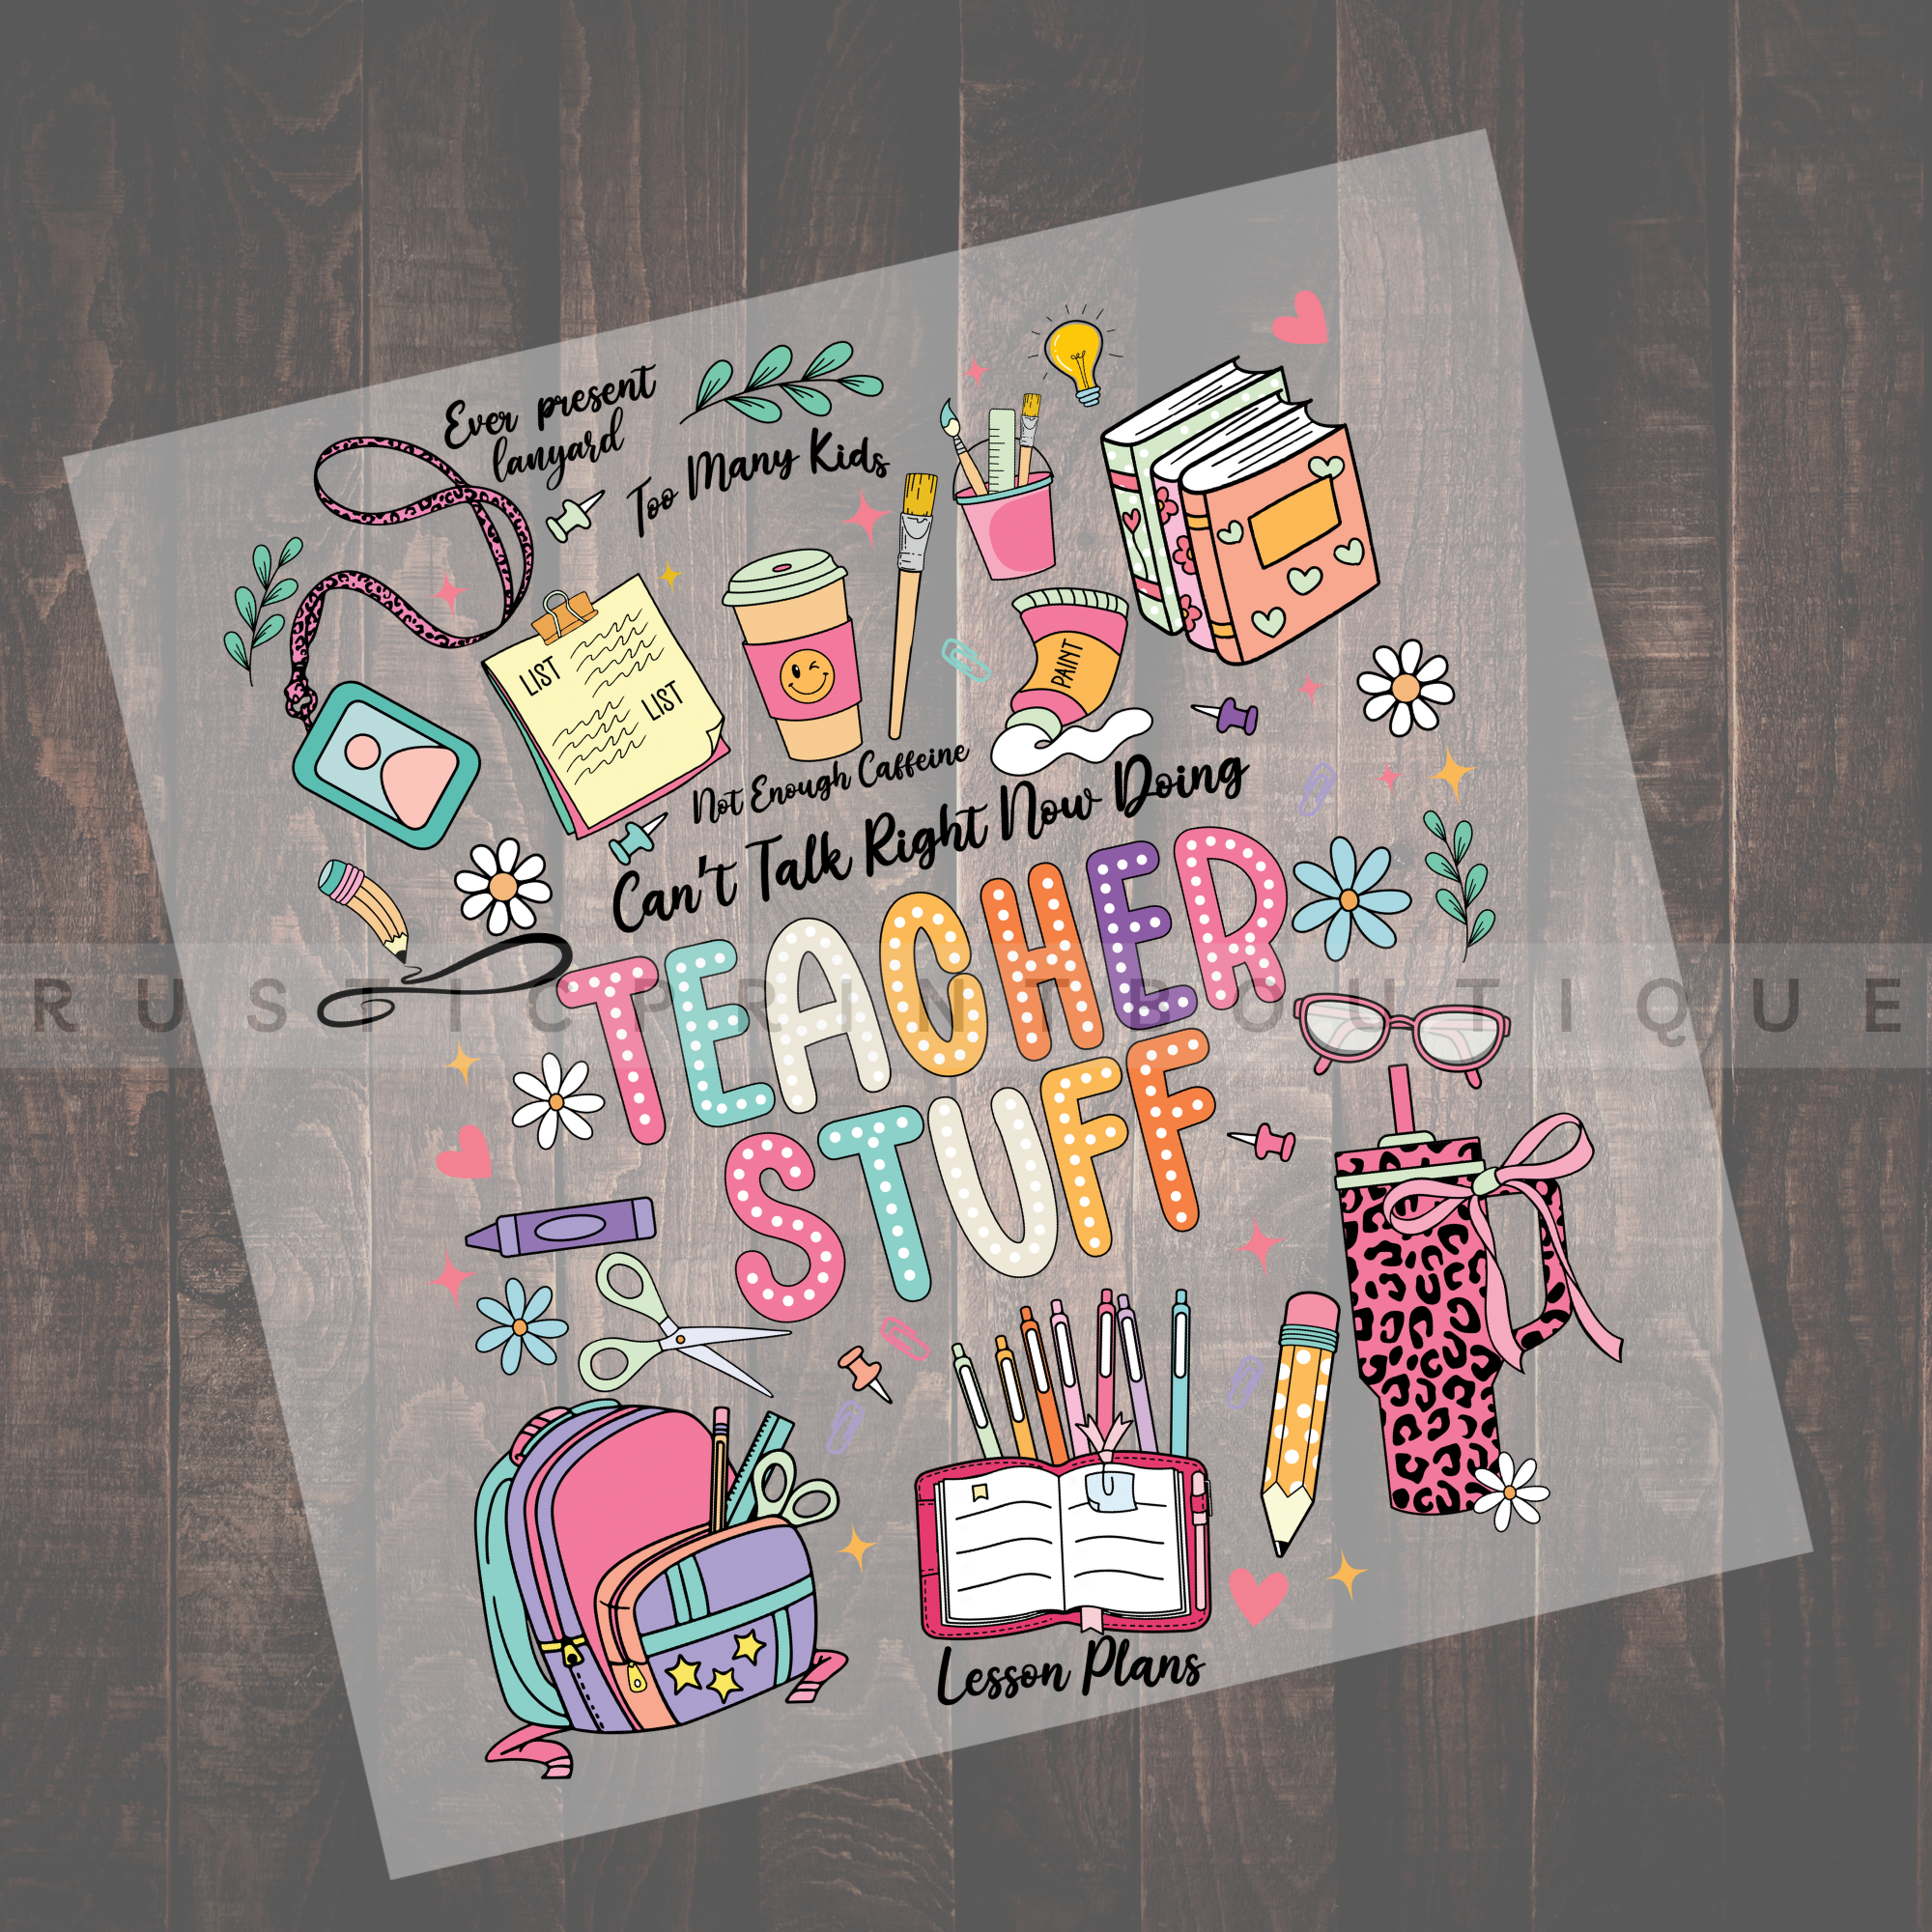 Ever present
lanyard
Too Many Kids
LIST
LIST
PAINT
Not Enough Caffeine
Can't Talk Right Now Doing
TEACHER
STUFF
RUSTICPRINTBOUTIQUE
Lesson Plans